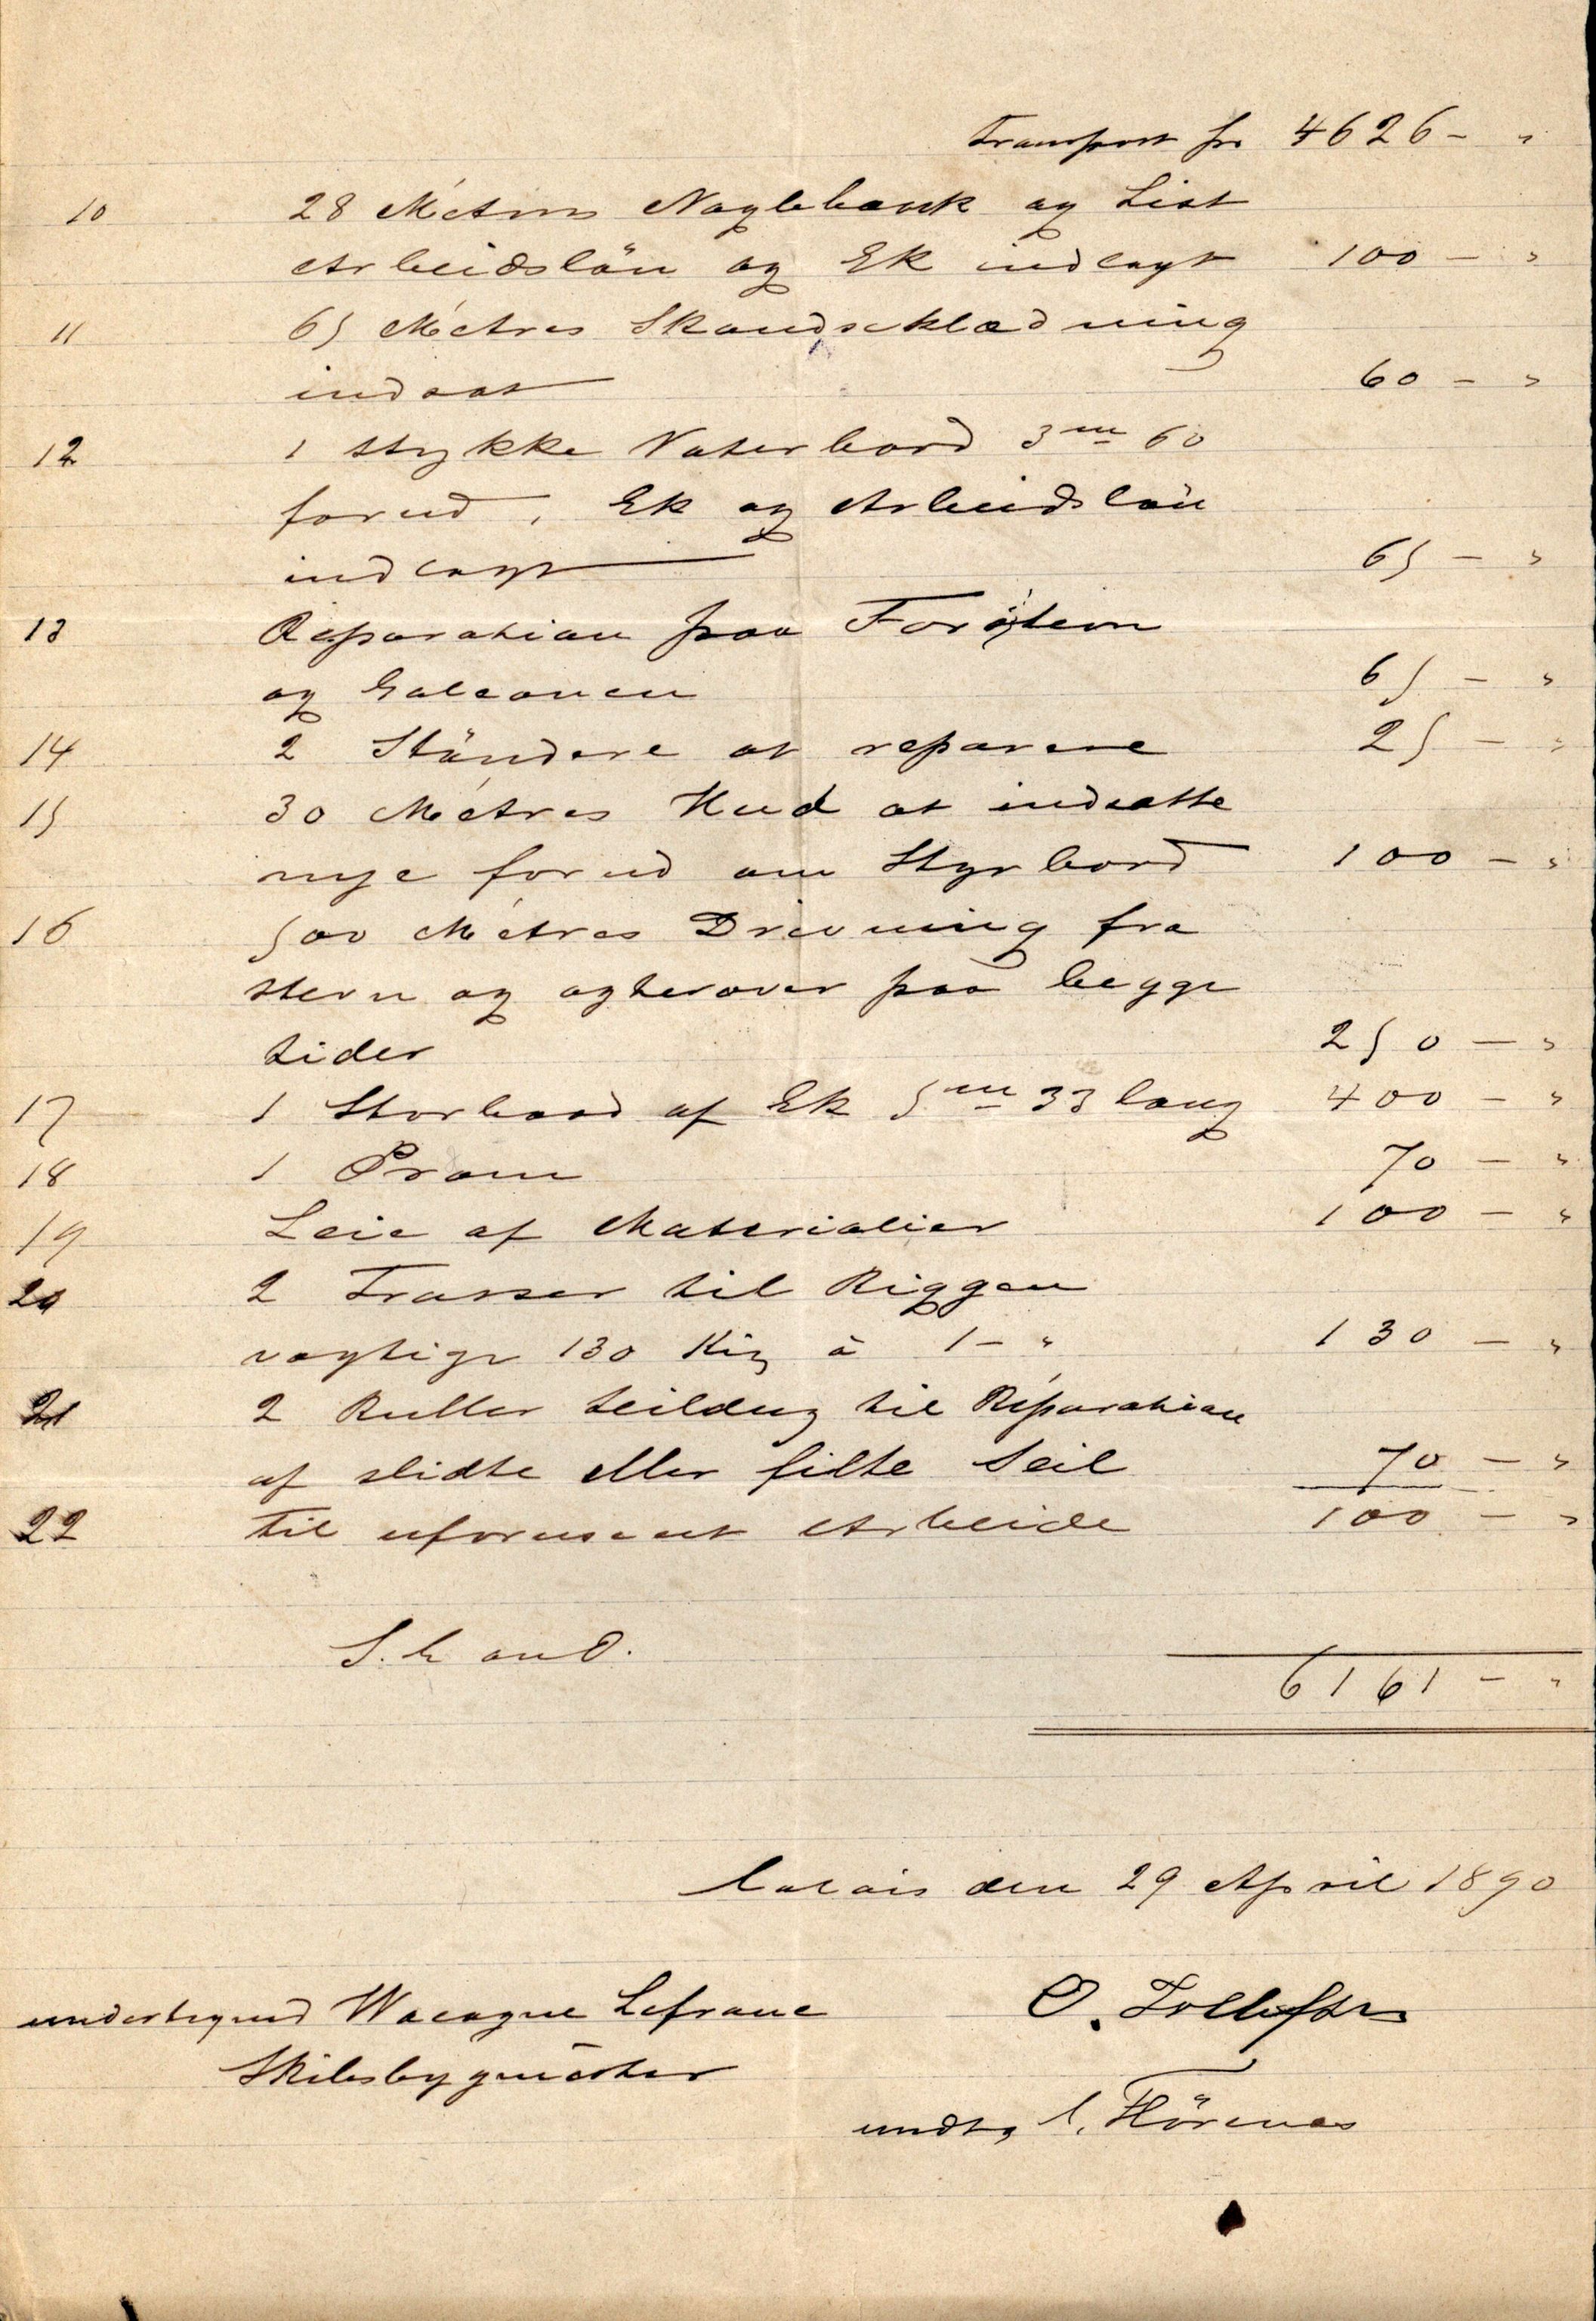 Transport frs 4626 - "
10 28 Métres Naglebænk og List
Arbeidslön og Ek indlagt 100 - "
11 65 Métres Skandseklædning
indsat 60 - "
12 1 stykke Vaterbord 3 m 60
forud, Ek og Arbeidslön
indlagt 65 - "
13 Réparation paa Forstevn
og Galeonen 65 - "
14 2 Støndere at reparere 25 - "
15 30 Métres Hud at indsætte
nye forud om Styrbord 100 - "
16 500 Métres Drivning fra
stevn og agterover paa begge
sider 250 - "
17 1 Storbaad af Ek 5 m 33 lang 400 - "
18 1 Pram 70 - "
19 Leie af Materialier 100 - "
20 2 Trosser til Riggen
vægtige 130 Kig à 1 - " 130 - "
21 2 Ruller Seildug til Réparation
af slidte eller filte Seil 70 - "
22 til uforuseet Arbeide 100 - "
S. E. and O.
6161 - "
Calais den 29 April 1890
undertegned Wacogne Lefranc O. Tollefsen
Skibsbygmester
undtg C. Hörenas